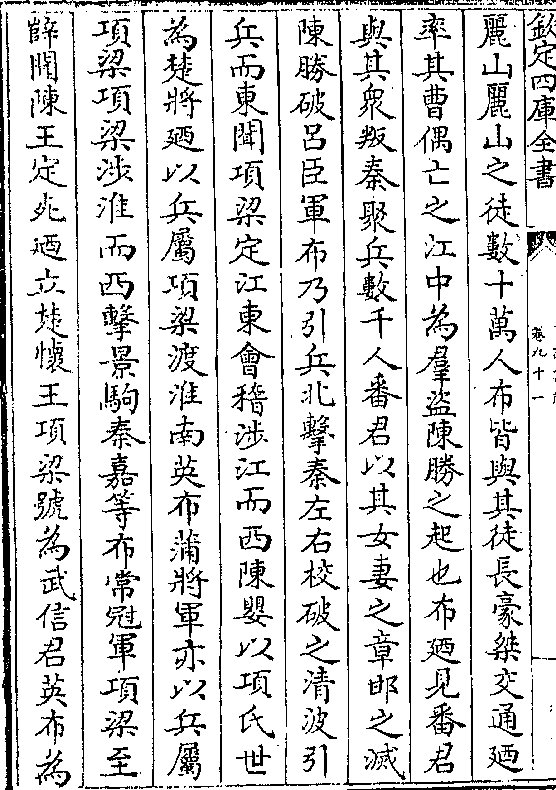 欽定四庫全書
卷九十一
麗山麗山之徒數十萬人布皆與其徒長豪桀交通廼
率其曹偶亡之江中為羣盜陳勝之起也布廼見番君
與其衆叛秦聚兵數千人番君以其女妻之章邯之滅
陳勝破呂臣軍布乃引兵北擊秦左右校破之清波引
兵而東聞項梁定江東會稽涉江而西陳嬰以項氏世
為楚將廼以兵屬項梁渡淮南英布蒲將軍亦以兵屬
項梁項梁涉淮而西擊景駒秦嘉等布常冠軍項梁至
薛聞陳王定死廼立楚懷王項梁號為武信君英布為